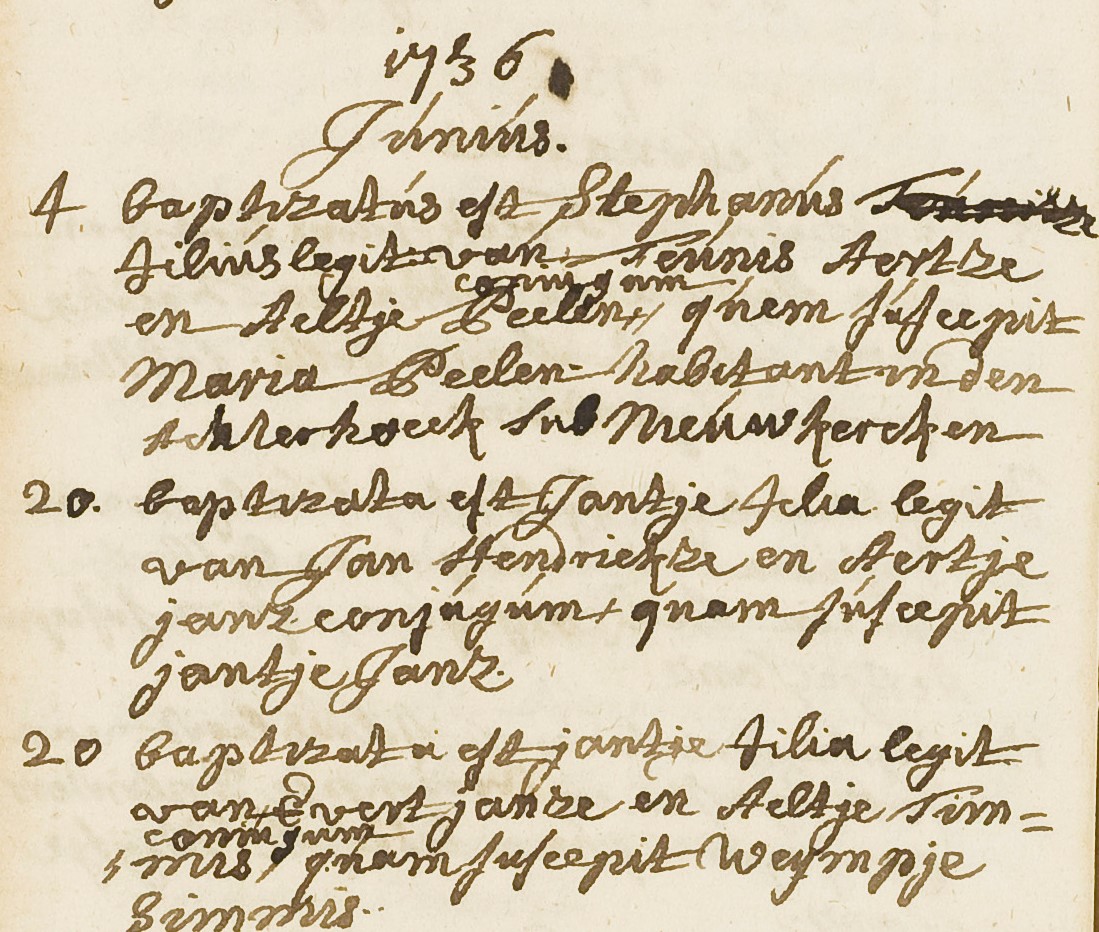 1736
Junius.
4 baptizatus est Stephanus
filius legit van Teunis Aertze
conjugum
en Aeltje Peelen, quem suscepit
Maria Peelen habitant in den
Achterhoeck sub Nieuwkercken
20. baptizata est Jantje filia legit
van Jan Hendrickze en Aertje
janz conjugum, quam suscepit
jantje Janz.
20 baptizata est jantje filia legit
van Evert janze en Aeltje Tim=
conjugum
mis, quam suscepit Weympje
Simmis.